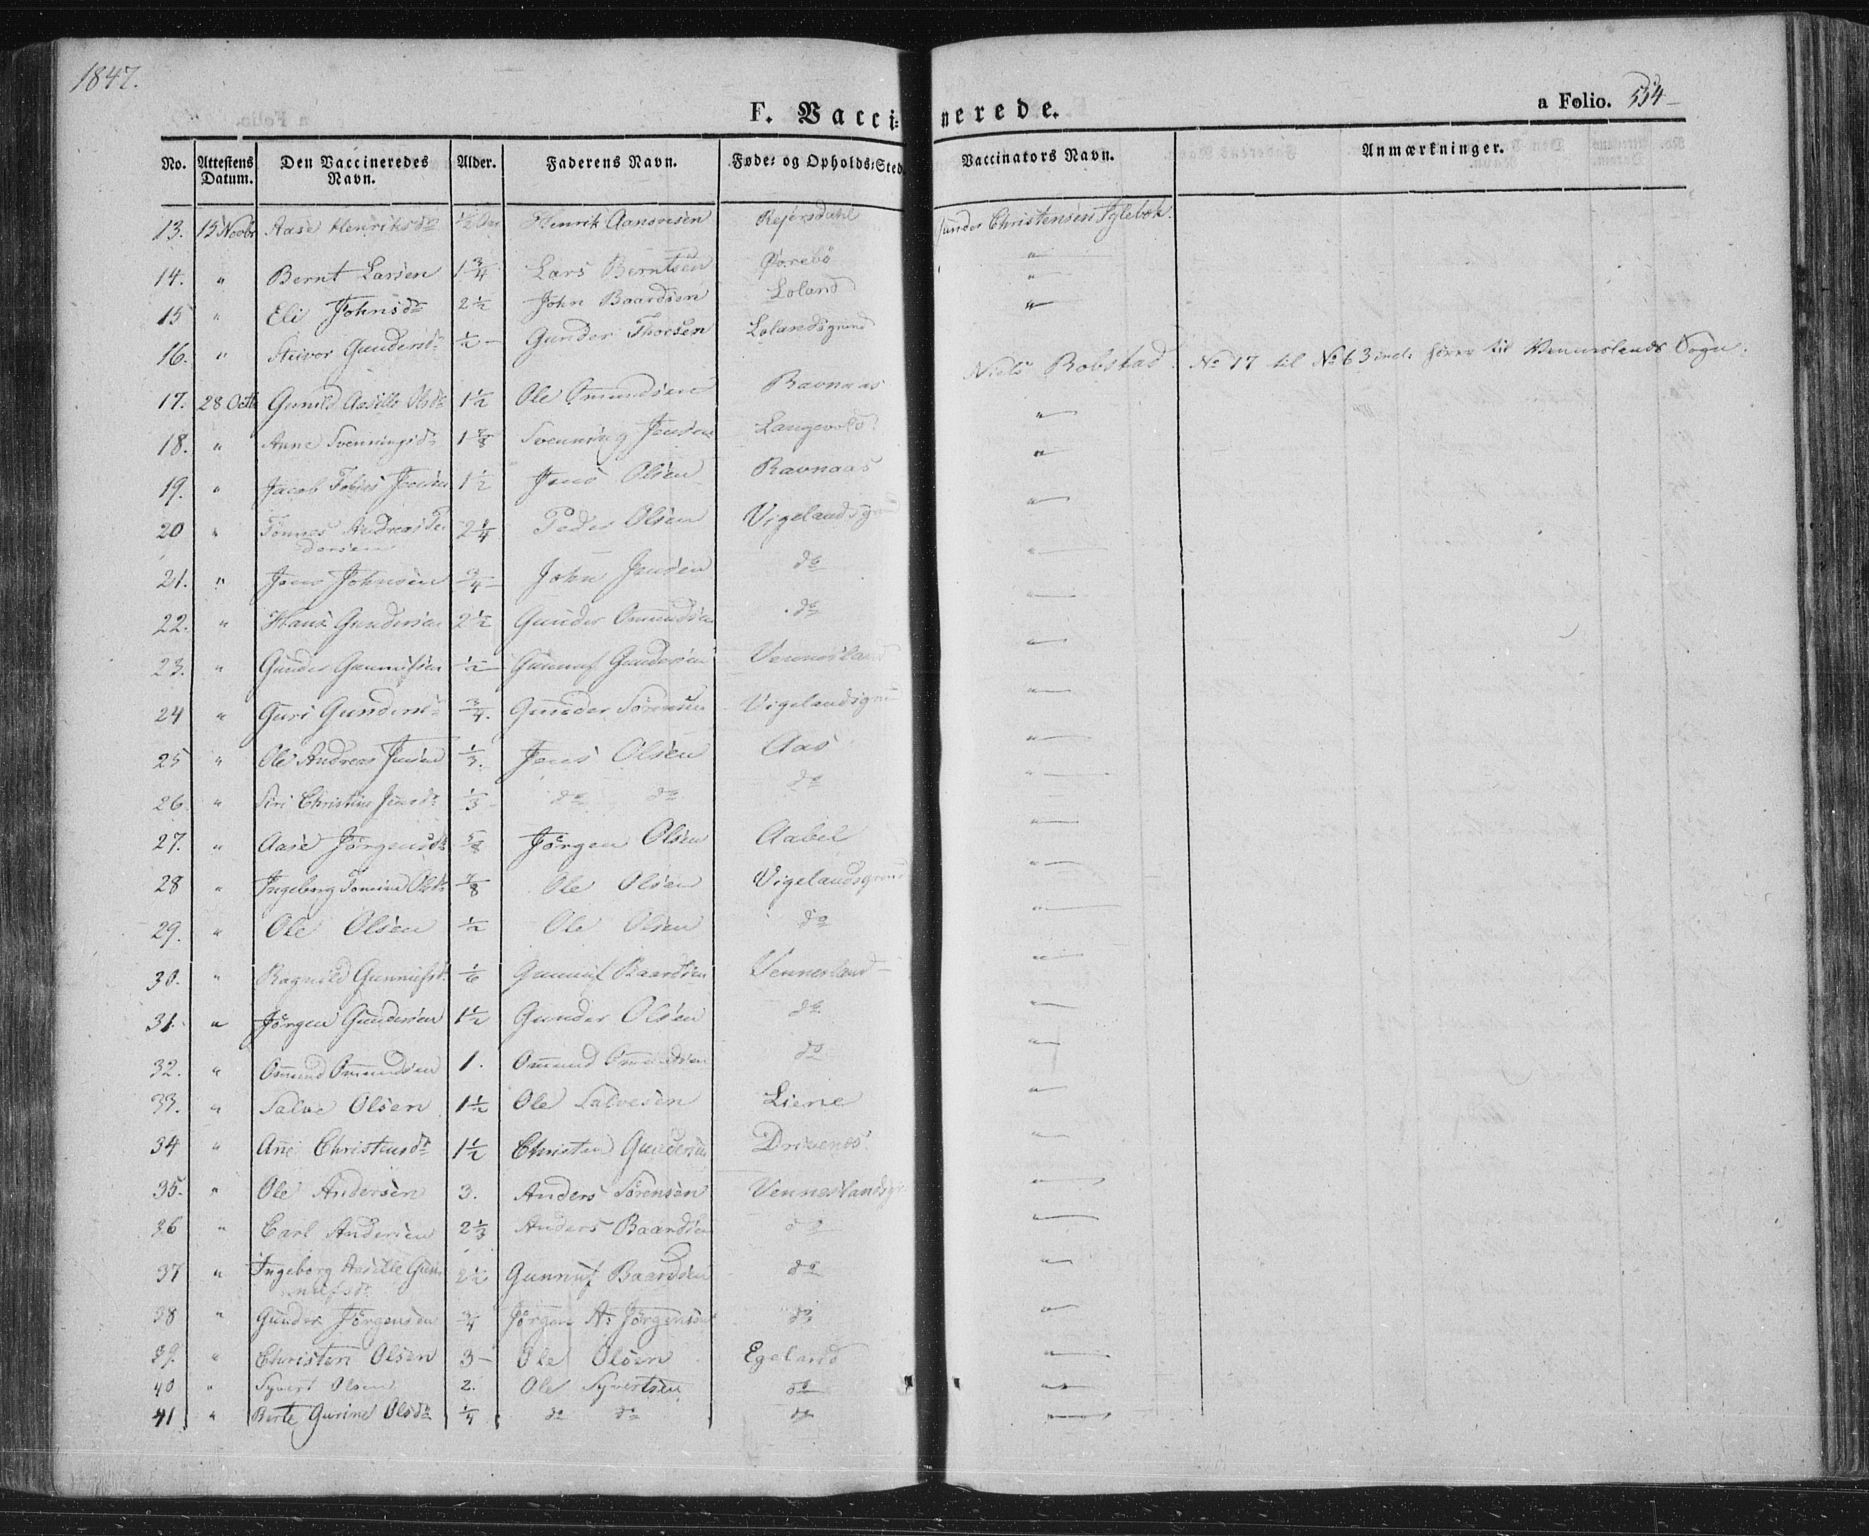 1847.
F. Vaccinerede.
a Folio. 554
No. Attestens Datum. Den Vaccineredes Navn. Alder. Faderens Navn. Føde- og Opholds-Sted. Vaccinators Navn. Anmærkninger.
13. 15 Novbr Aase Henriksdr Henrik Aanonsen Rejersdahl Gunder Christensen
14. " Bernt Larsen 1 3/4 Lars BerntsenØrebö "
15 " Eli Johnsdr 2 1/2 John Baardsen Loland "
16. " Gundersdr 1/2 - Gunder Thorsen Lolandsgrund "
17. 28 Octbr Gunild Aasille Olsdr 1 1/2 Ole Omundsen Ravnaas Niels Robstad. No 17 til No 63 incl. hörer til Vennerslands Sogn.
18. " Anne Svenningsdr Svenning Jensen "
19. " Jacob Tobias Jensen 1 1/2 Jens Olsen Ravnaas "
20 " Tönnes Andreas Pedersen 2 1/4 Peder Olsen Vigelandsgrund "
21. " Jens Johnsen 3/4 John Jensen do "
22. " Hans Gundersen 2 1/2 Gunder Omundsen do "
23. " Gunder Gunnufsen 1/2 - Gunnuf Gundersen Vennesland "
24 " Guri Gundersdr 3/4. Gunder Sörensen Vigelandsgrund "
25 " Ole Andreas Jensen 1/3. Jens Olsen Aas "
26. " Siri Christine Jensdr 1/3 - do do do "
27. " Aase Jörgensdr Jörgen Olsen Aabel "
28 " Ingeborg Tomine Olsdr 7/8 Ole Olsen Vigelandsgrund "
29. " Ole Olsen 1/2 Ole Olsen do "
30. " Ragnild Gunnufsdr 1/6 Gunnuf Baardsen Vennesland "
31. " Jörgen Gundersen 1 1/2 Gunder Olsen do "
32. " Omund Omundsen 1. Omund Omundsen do "
33. " Salve Olsen 1 1/2 Ole Salvesen Liene "
34 " Ane Christensdr 1 1/2 Christen Gundersen Drivenes "
35. " Ole Andersen 3. Anders Sörensen Venneslandsgr "
36 " Carl Andersen 2 1/3 Anders Baardsen do "
37 " Ingeborg Aasille Gunnufsdr 2 1/2 Gunnuf Baardsen do "
38 " Gunder Jörgensen 3/4 Jörgen As Jörgensen do "
39. " Christen Olsen 3 - Ole Olsen Egeland "
40 " Syvert Olsen 2. Ole Syvertsen do "
41 " Berte Gurine Olsdr 1/4 do do do "